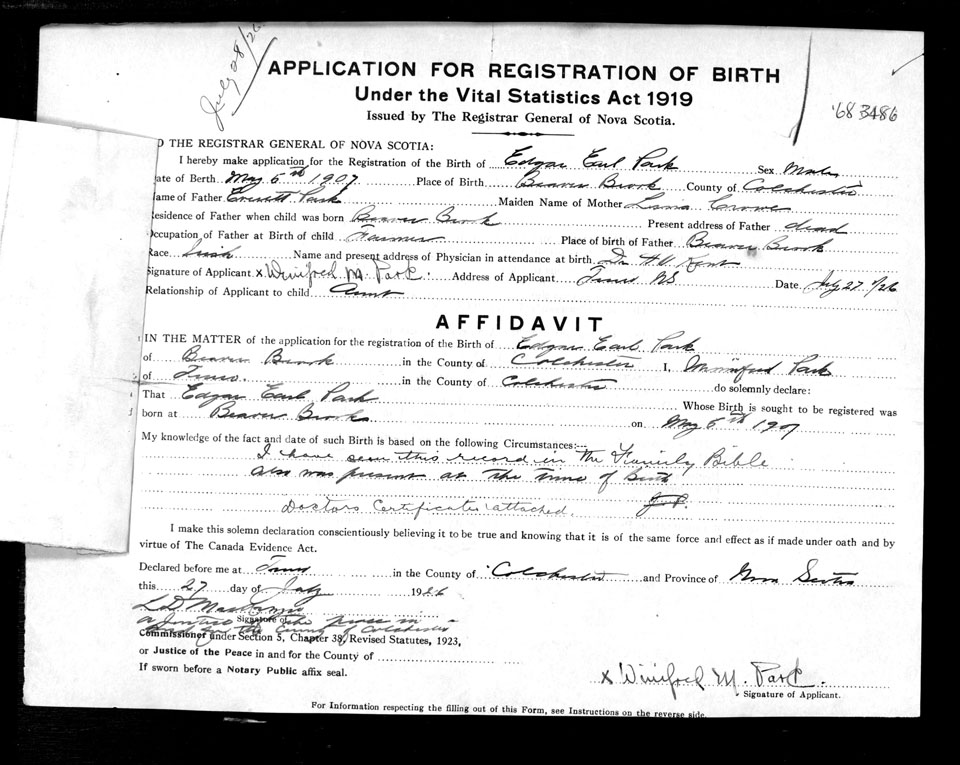 July 28/26
APPLICATION FOR REGISTRATION OF BIRTH
Under the Vital Statistics Act 1919
Issued by The Registrar General of Nova Scotia.
'68 3486
O THE REGISTRAR GENERAL OF NOVA SCOTIA:
I hereby make application for the Registration of the Birth of Edgar Earl Park Sex Male
ate of Berth May 5th 1907 Place of Birth Beaver Brook County of Colchester
ame of Father Everett Park Maiden Name of Mother Crowe
esidence of Father when child was born Beaver Brook Present address of Father dead
Occupation of Father at Birth of child Farmer Place of birth of Father Beaver Brook
Race Irish Name and present address of Physician in attendance at birth Dr H.V. Kent
Signature of Applicant x Winifred M. Park Address of Applicant Truro NS Date July 27 1/26
Relationship of Applicant to child Aunt
AFFIDAVIT
IN THE MATTER of the application for the registration of the Birth of Edgar Earl Park
of Beaver Brook in the County of Colchester I, Winnifred Park
of Truro. in the County of Colchester do solemnly declare:
That Edgar Earl Park Whose Birth is sought to be registered was
born at Beaver Brook on May 5th 1907
My knowledge of the fact and date of such Birth is based on the following Circumstances:
I have seen this record in the Family Bible
also was present at the time of Birth
Doctors Certificate attached.
I make this solemn declaration conscientiously believing it to be true and knowing that it is of the same force and effect as if made under oath and by
virtue of The Canada Evidence Act.
Declared before me at Truro in the County of Colchester and Province of Nova Scotia
this 27 day of July 1926
L D
a Justice of the peace in
Signature of
and for the County of Colchester
Commissioner under Section 5, Chapter 38, Revised Statutes, 1923,
or Justice of the Peace in and for the County of
If sworn before a Notary Public affix seal.
x Winifred M. Park.
Signature of Applicant.
For Information respecting the filling out of this Form, see Instructions on the reverse side.